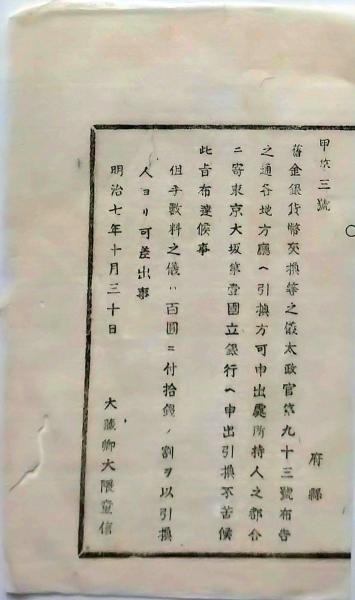 甲第三號
府縣
舊金銀貨幣交換等之儀太政官第九十三號布告
之通各地方廳ヘ引換方可申出處所持人之都合
ニ寄東京大坂第壹國立銀行ヘ申出引換不苦候
此旨布達候事
但手數料之儀ハ百圓ニ付拾錢ノ割ヲ以引換
人ヨリ可差出事
明治七年十月三十日
大藏卿大隈重信